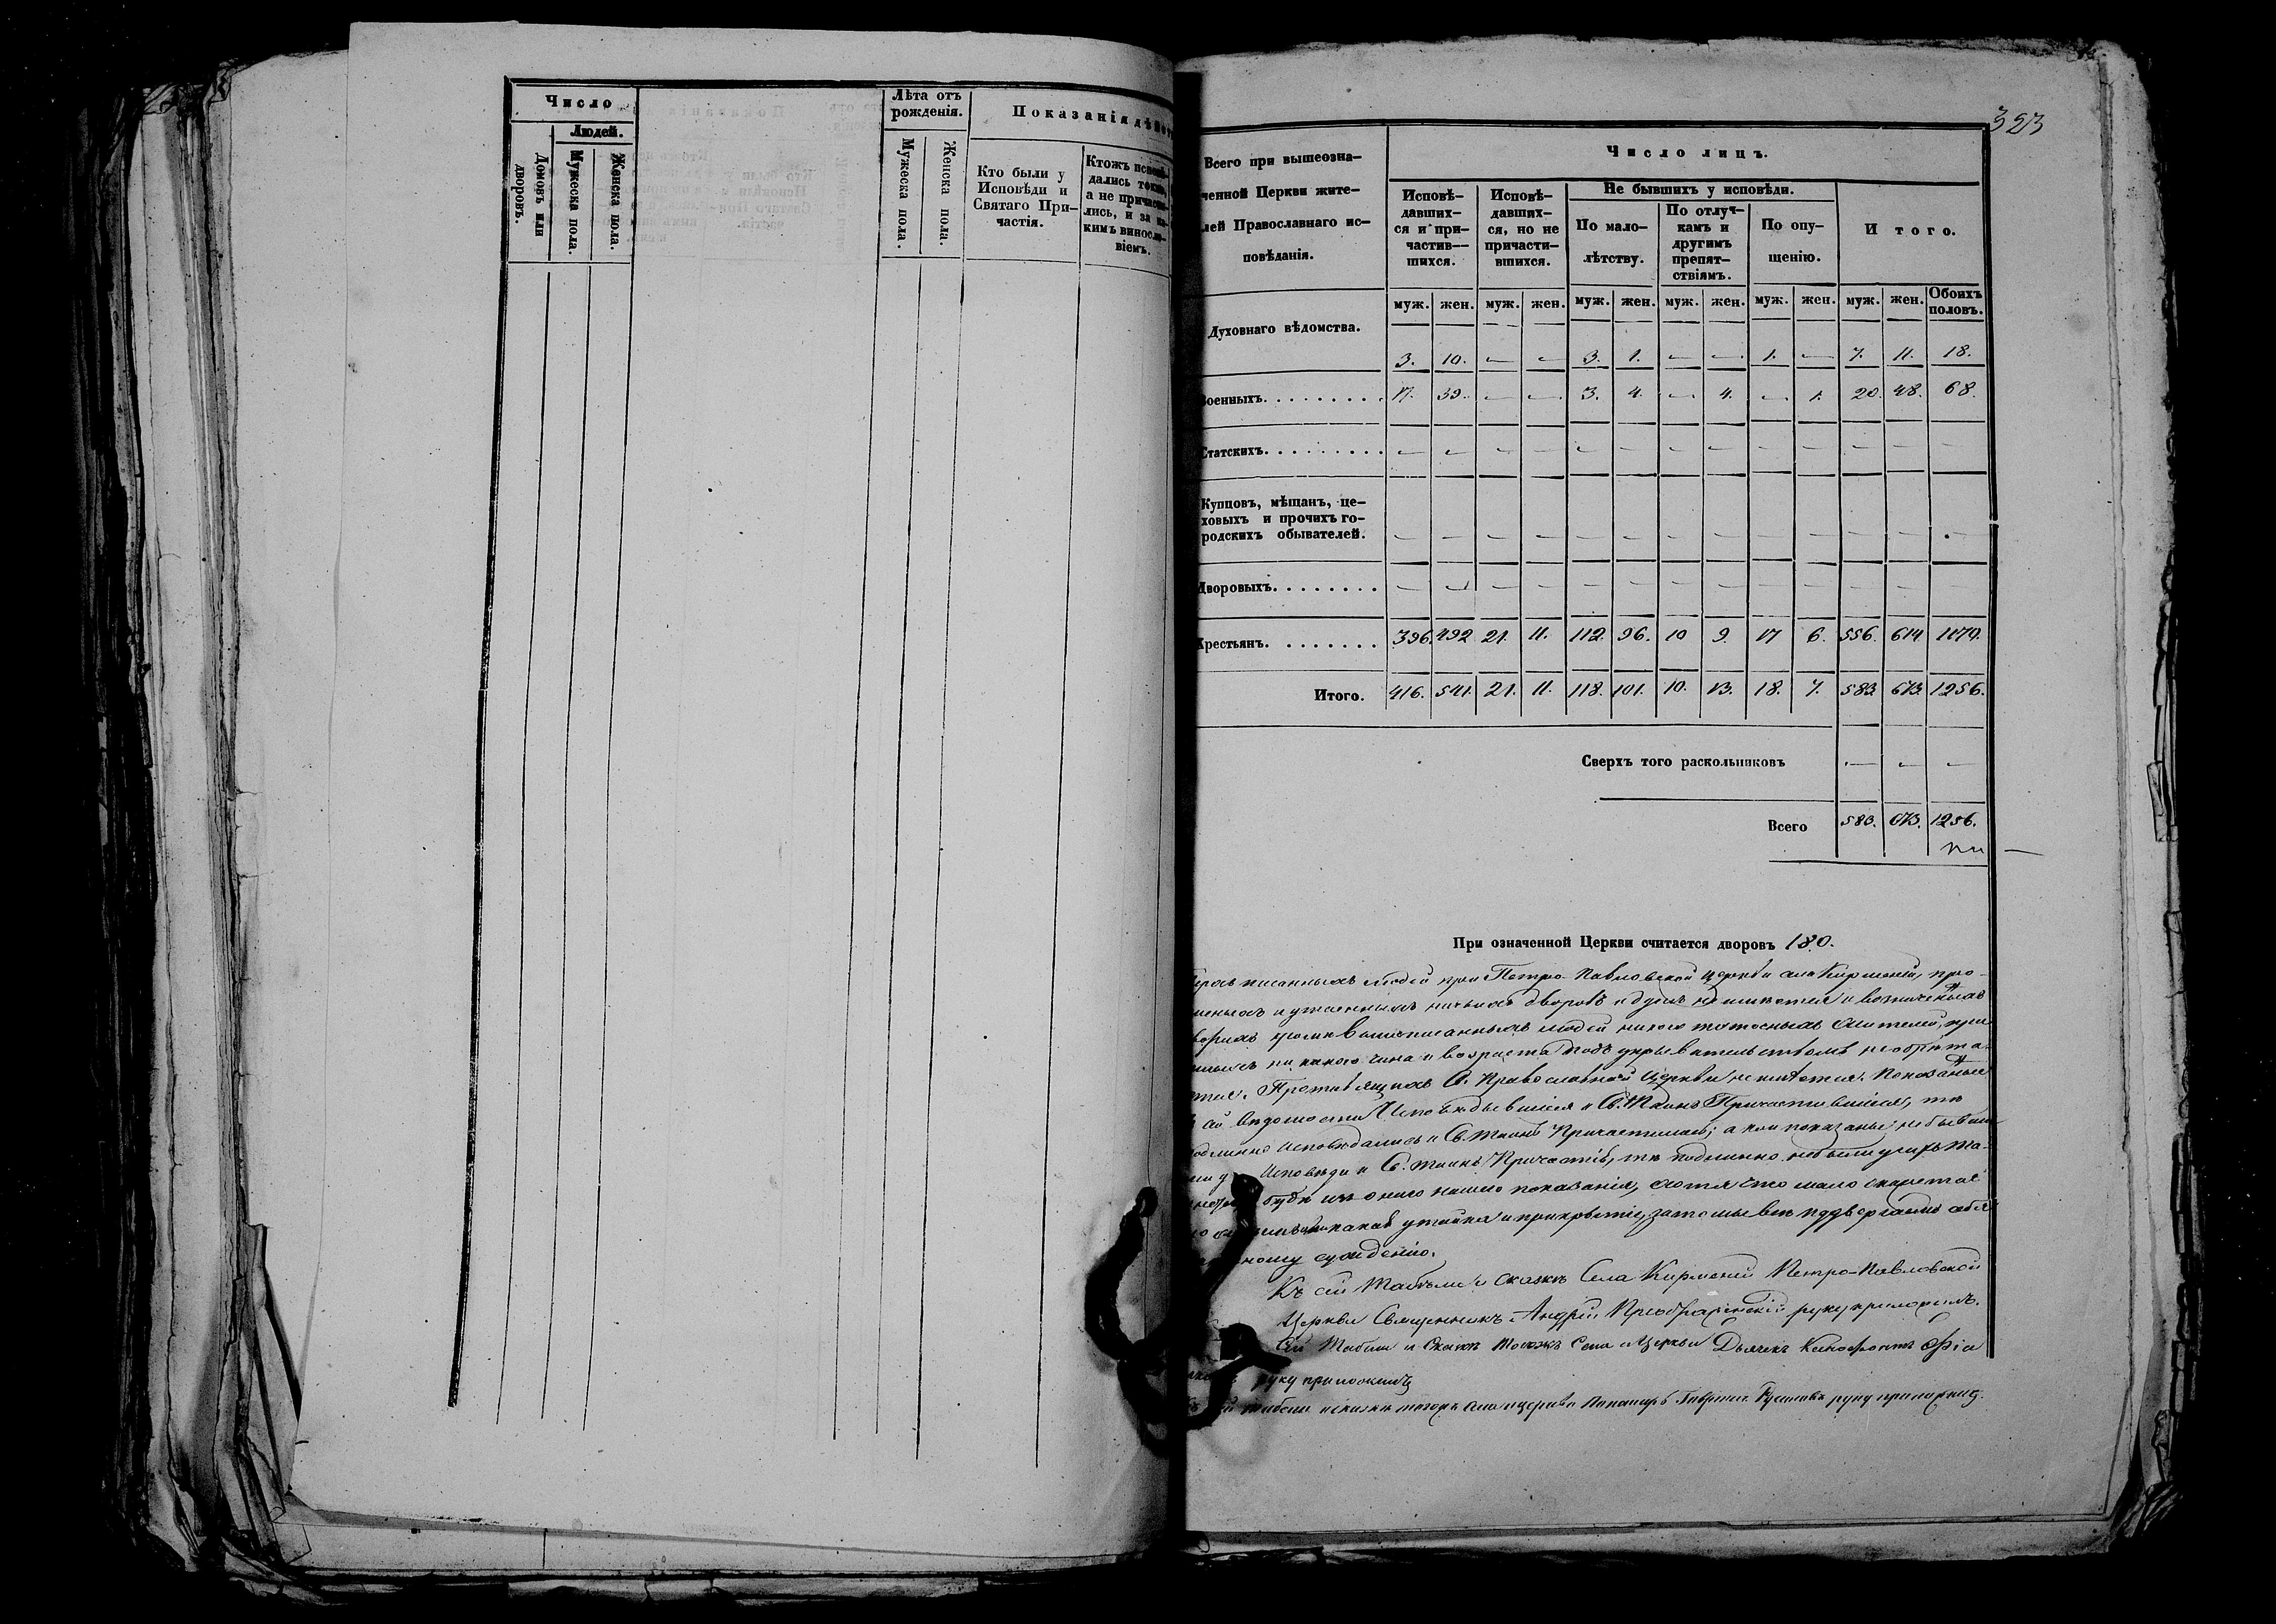 Число
Людей.
Домовъ или дворовъ.
Мужеска пола.
Женска пола.
Лѣта отъ
рожденія.
Мужеска пола.
Женска пола.
Показанія дѣй
Кто были у
Исповѣди и
Святаго При-
частія.
Ктожъ исповѣ-
дались токмо,
а не причасти-
лись, и за ка-
кимъ винослo-
віемъ.
323
Всего при вышеозна-
ченной Церкви жите-
лей Православнаго ис-
повѣданія.
Число лицъ.
Исповѣ-
давших-
ся и при-
частив-
шихся.
Исповѣ-
давших-
ся, но не
причасти-
вшихся.
Не бывшихъ у исповѣди.
По мало-
лѣтству.
По отлуч-
камъ и
другимъ
препят-
ствіямъ.
По опу-
щенію.
Итого.
муж. жен. муж. жен. муж. жен. муж. жен. муж. жен. муж. жен. Обоихъ половъ.
Духовнаго вѣдомства.
3. 10. — — 3. 1. — — 1. — 7. 11. 18.
Военныхъ. 17. 39. — — 3. 4. — 4. — 1. 20. 48. 68.
Статскихъ. — — — — — — — — — — — — —
Купцовъ, мѣщанъ, це-
ховыхъ и прочихъ го-
родскихъ обывателей. — — — — — — — — — — — — —
Дворовыхъ. — — — — — — — — — — — —
Крестьянъ. 396. 492 21. 11. 112. 96. 10 9. 17 6. 556. 614 1170.
Итого. 416. 541. 21. 11. 118. 101. 10. 13. 18. 7. 583. 673. 1256.
Сверхъ того раскольниковъ — — —
Всего 583. 673. 1256.
При означенной Церкви считается дворовъ 180.
писанныхъ людей при Петро-Павловской церкви села Кирменей, про-
и утаенныхъ ничьихъ дворовъ и душъ не имѣется и
кромѣ вышеписанныхъ людей никого
никакого чина и возраста подъ укрывательствомъ не обрѣта-
Противящихся С. Православной Церкви не имѣется. Показаные
сей вѣдомости Исповѣдывшіеся и Св. Таинъ Причастившіеся, тѣ
подлинно исповѣдались и Св. Таинъ Причастились; а кои показаны не бывши-
Исповѣди и Св. Таинъ Причастія, тѣ подлинно не были
буде изъ онаго нашего показанія, хотя что мало скрытое
какая утайка и прикрытіе, за то мы всѣ подвергаемъ себя
сужденію.
Къ сей Табели и Сказкѣ Села Кирменей Петро-Павловской
Церкви Священникъ Андрей Преображенскій руку приложилъ.
Сей Табели и Сказкѣ тогожъ Села и Церкви Дьячекъ Ксенофонтъ
руку приложилъ
табели и сказкѣ тогожъ села и церкви Пономарь Гавріилъ руку приложилъ.